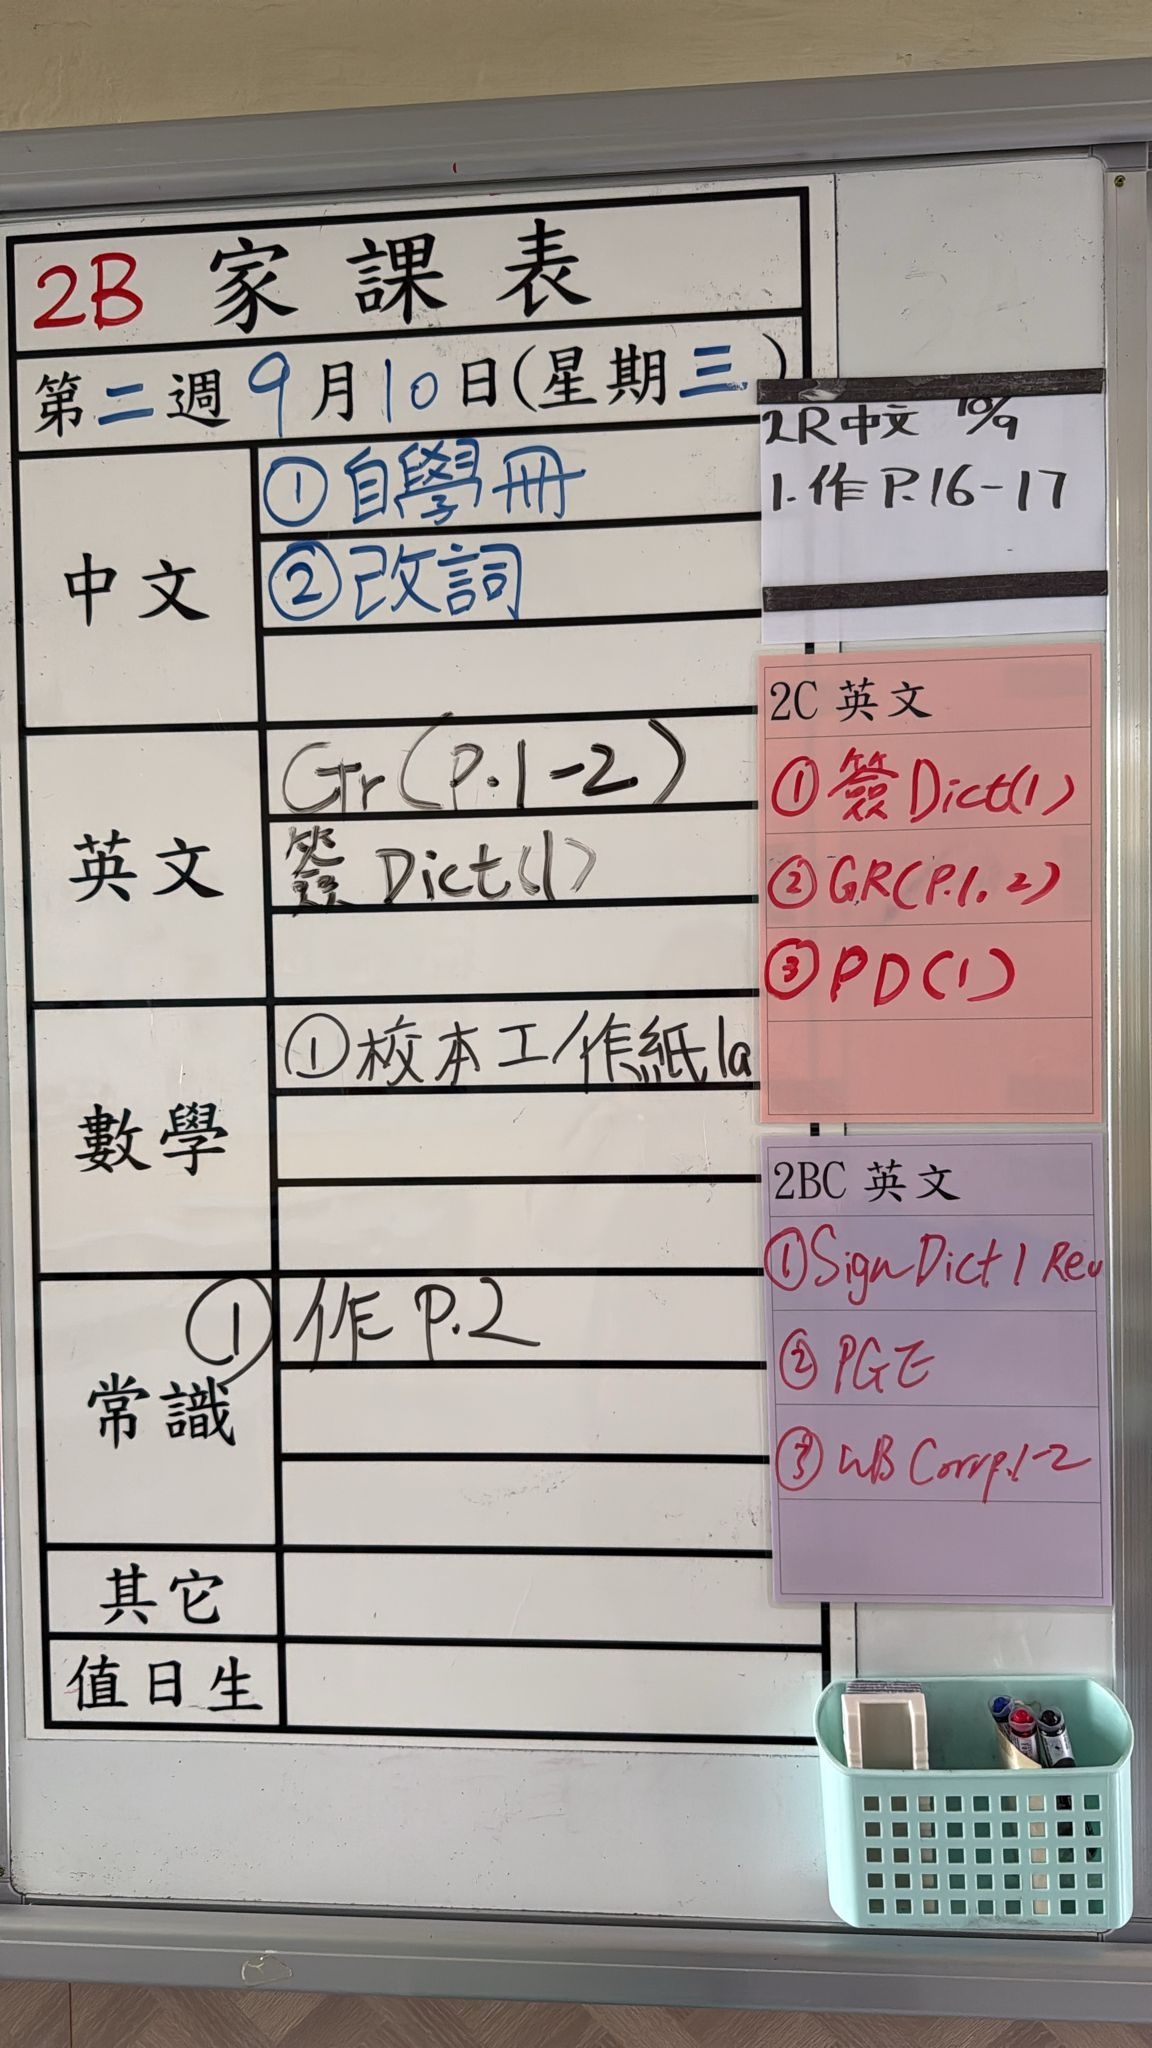 2B 家課表
第二週9月10日(星期三)
中文
①自學冊
②改詞
英文
Gr(P.1-2)
簽 Dict(1)
數學
①校本工作紙1a
常識
① 作 P.2
其它
值日生
2R中文 10/9
1.作 P.16-17
2C 英文
①簽Dict(1)
②GR(P.1.2)
③PD(1)
2BC 英文
①Sign Dict 1 Rev
②PGE
③WB Corr p.1-2